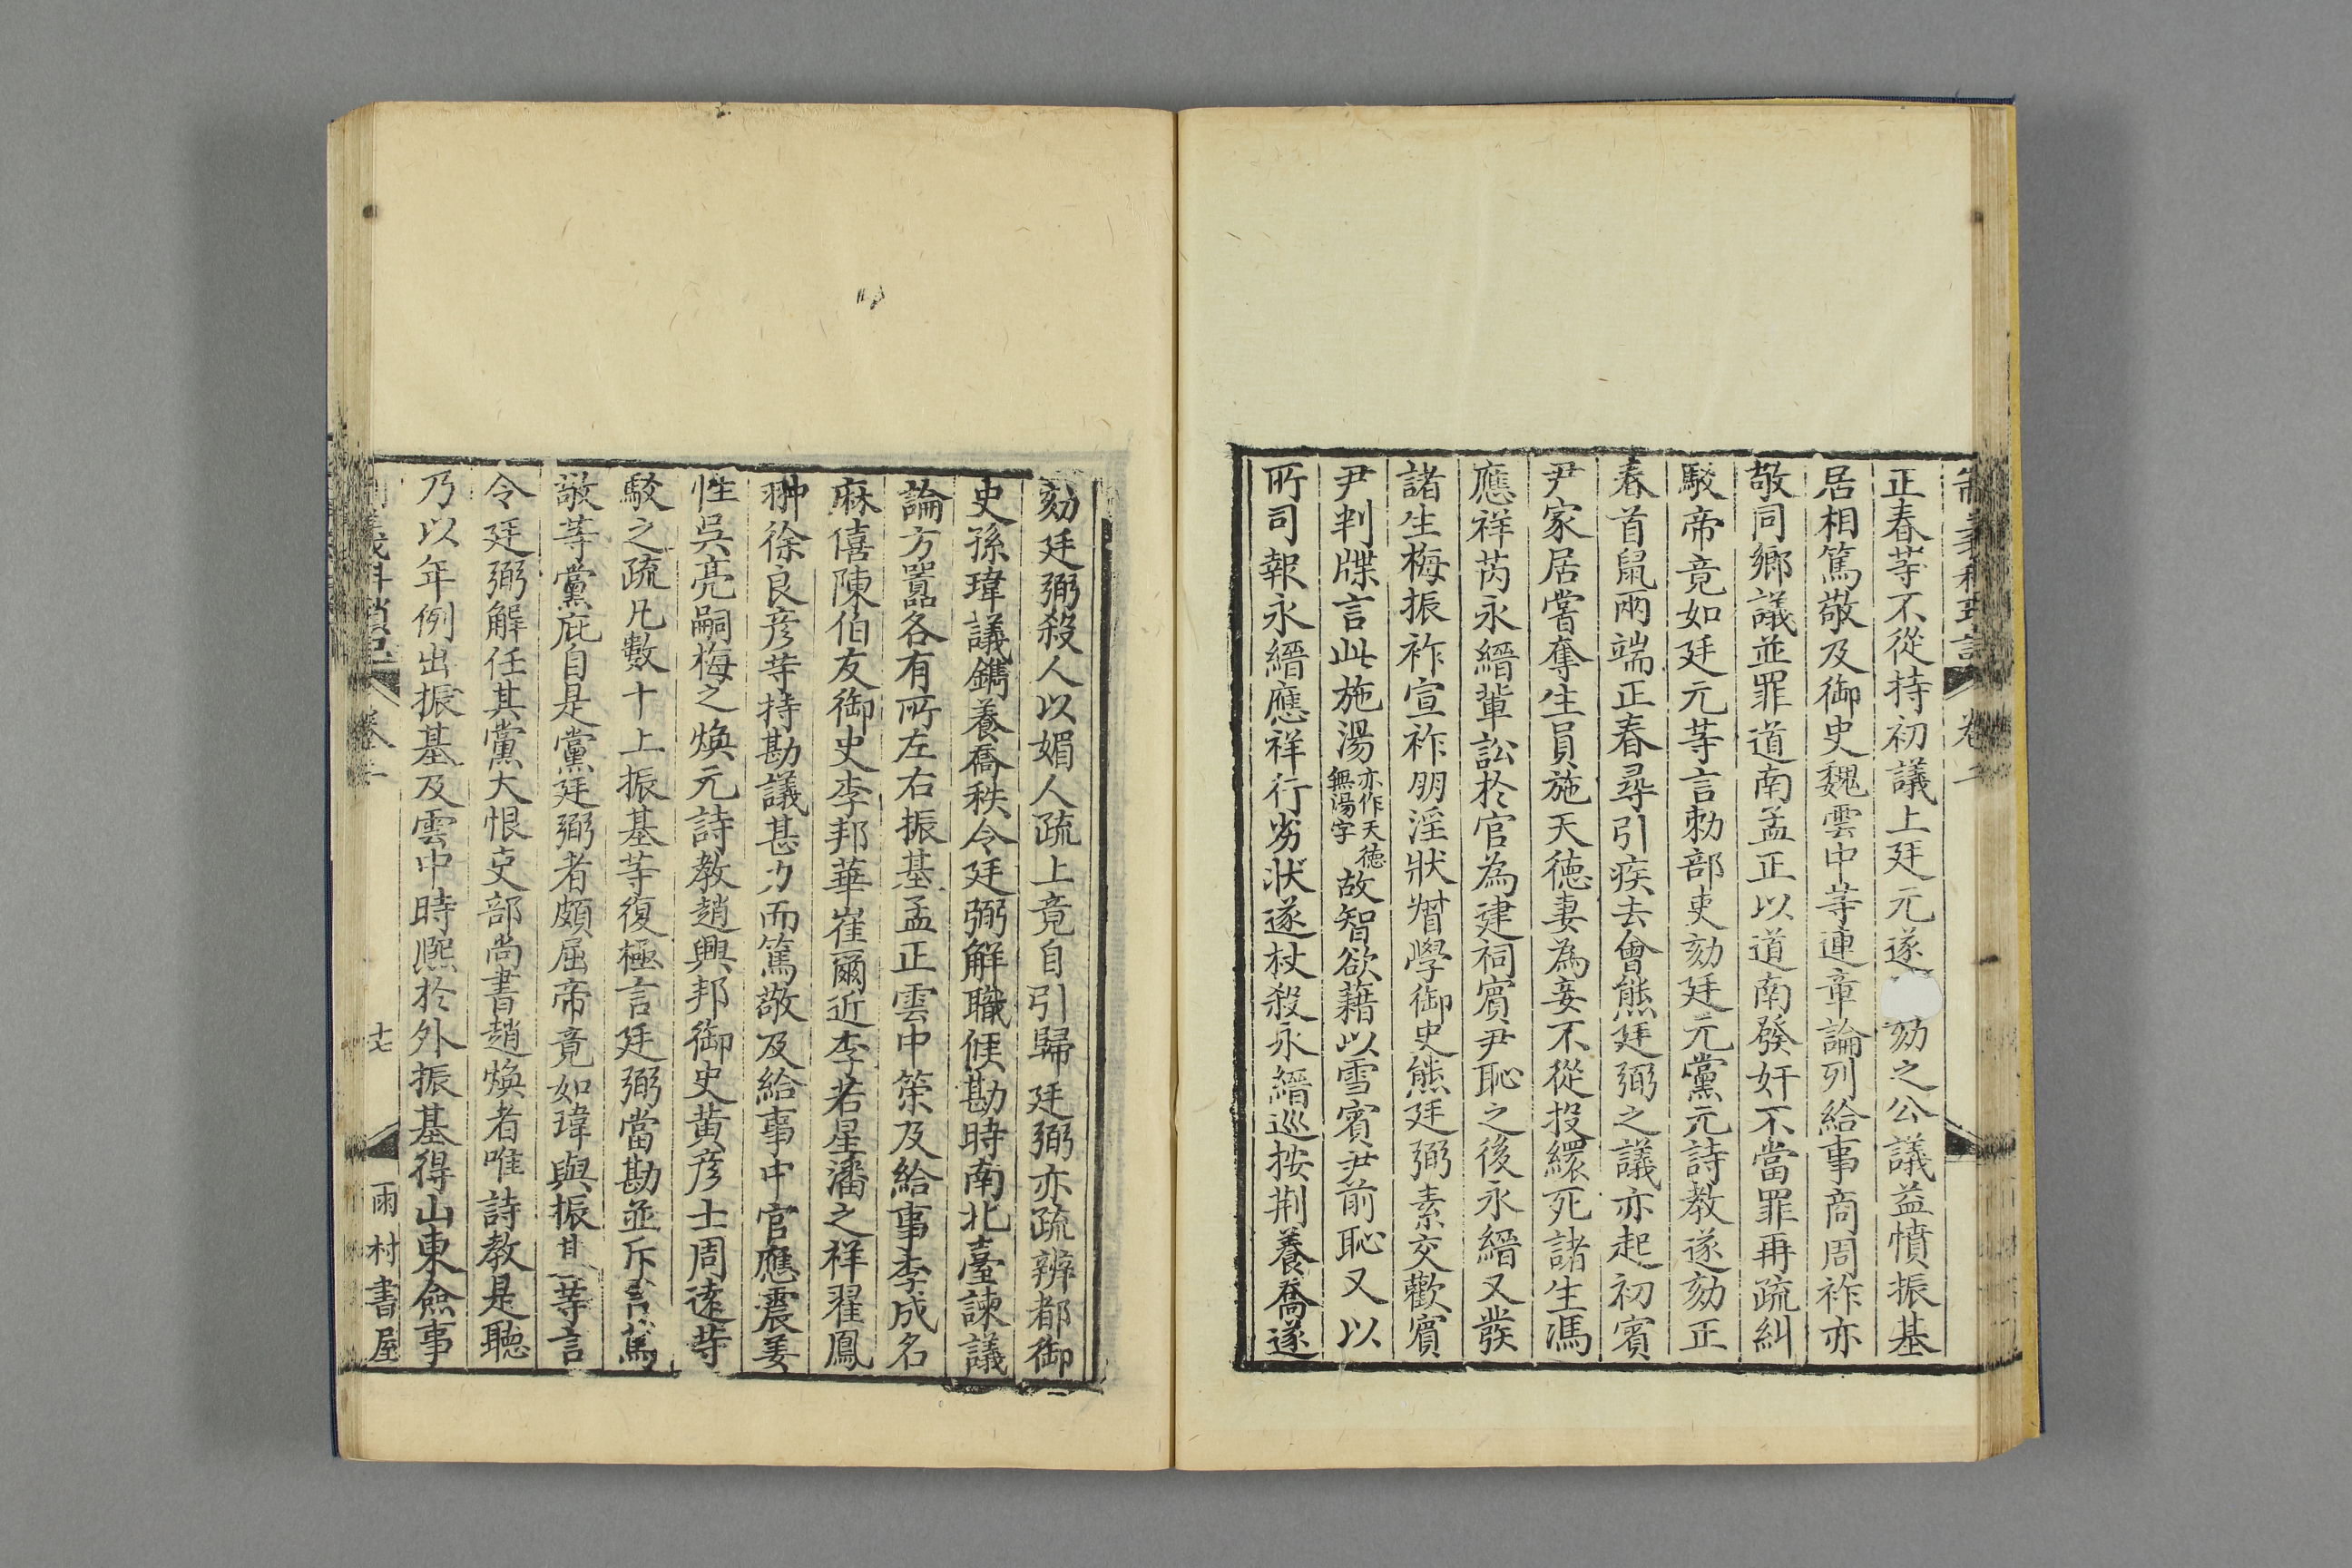 正春等不從持初議上廷元遂 劾之公議益憤振基
居相篤敬及御史魏雲中等連章論列給事商周祚亦
敬同鄉議並罪道南孟正以道南發奸不當罪再疏糾
駮帝竟如廷元等言勅部吏劾廷元黨元詩教遂劾正
春首鼠兩端正春尋引疾去會熊廷弼之議亦起初賓
尹家居嘗奪生員施天德妻為妾不從投繯死諸生馮
應祥芮永縉輩訟於官為建祠賓尹恥之後永縉又發
諸生梅振祚宣祚朋淫狀督學御史熊廷弼素交歡賓
尹判牒言此施湯亦作天德無湯字故智欲藉以雪賓尹前恥又以
所司報永縉應祥行劣狀遂杖殺永縉巡按荆養喬遂
劾廷弼殺人以媚人疏上竟自引歸廷弼亦疏辨都御
史孫瑋議鐫養喬秩令廷弼解職候勘時南北臺諫議
論方囂各有所左右振基孟正雲中策及給事李成名
麻僖陳伯友御史李邦華崔爾近李若星潘之祥翟鳳
翀徐良彦等持勘議甚力而篤敬及給事中官應震姜
性吳亮嗣梅之煥元詩教趙興邦御史黄彦士周遠等
駮之疏凡數十上振基等復極言廷弼當勘並斥言篤
敬等黨庇自是黨廷弼者頗屈帝竟如瑋與振基等言
令廷弼解任其黨大恨吏部尚書趙煥者唯詩教是聽
乃以年例出振基及雲中時熙於外振基得山東僉事
卷二 十七 雨村書屋